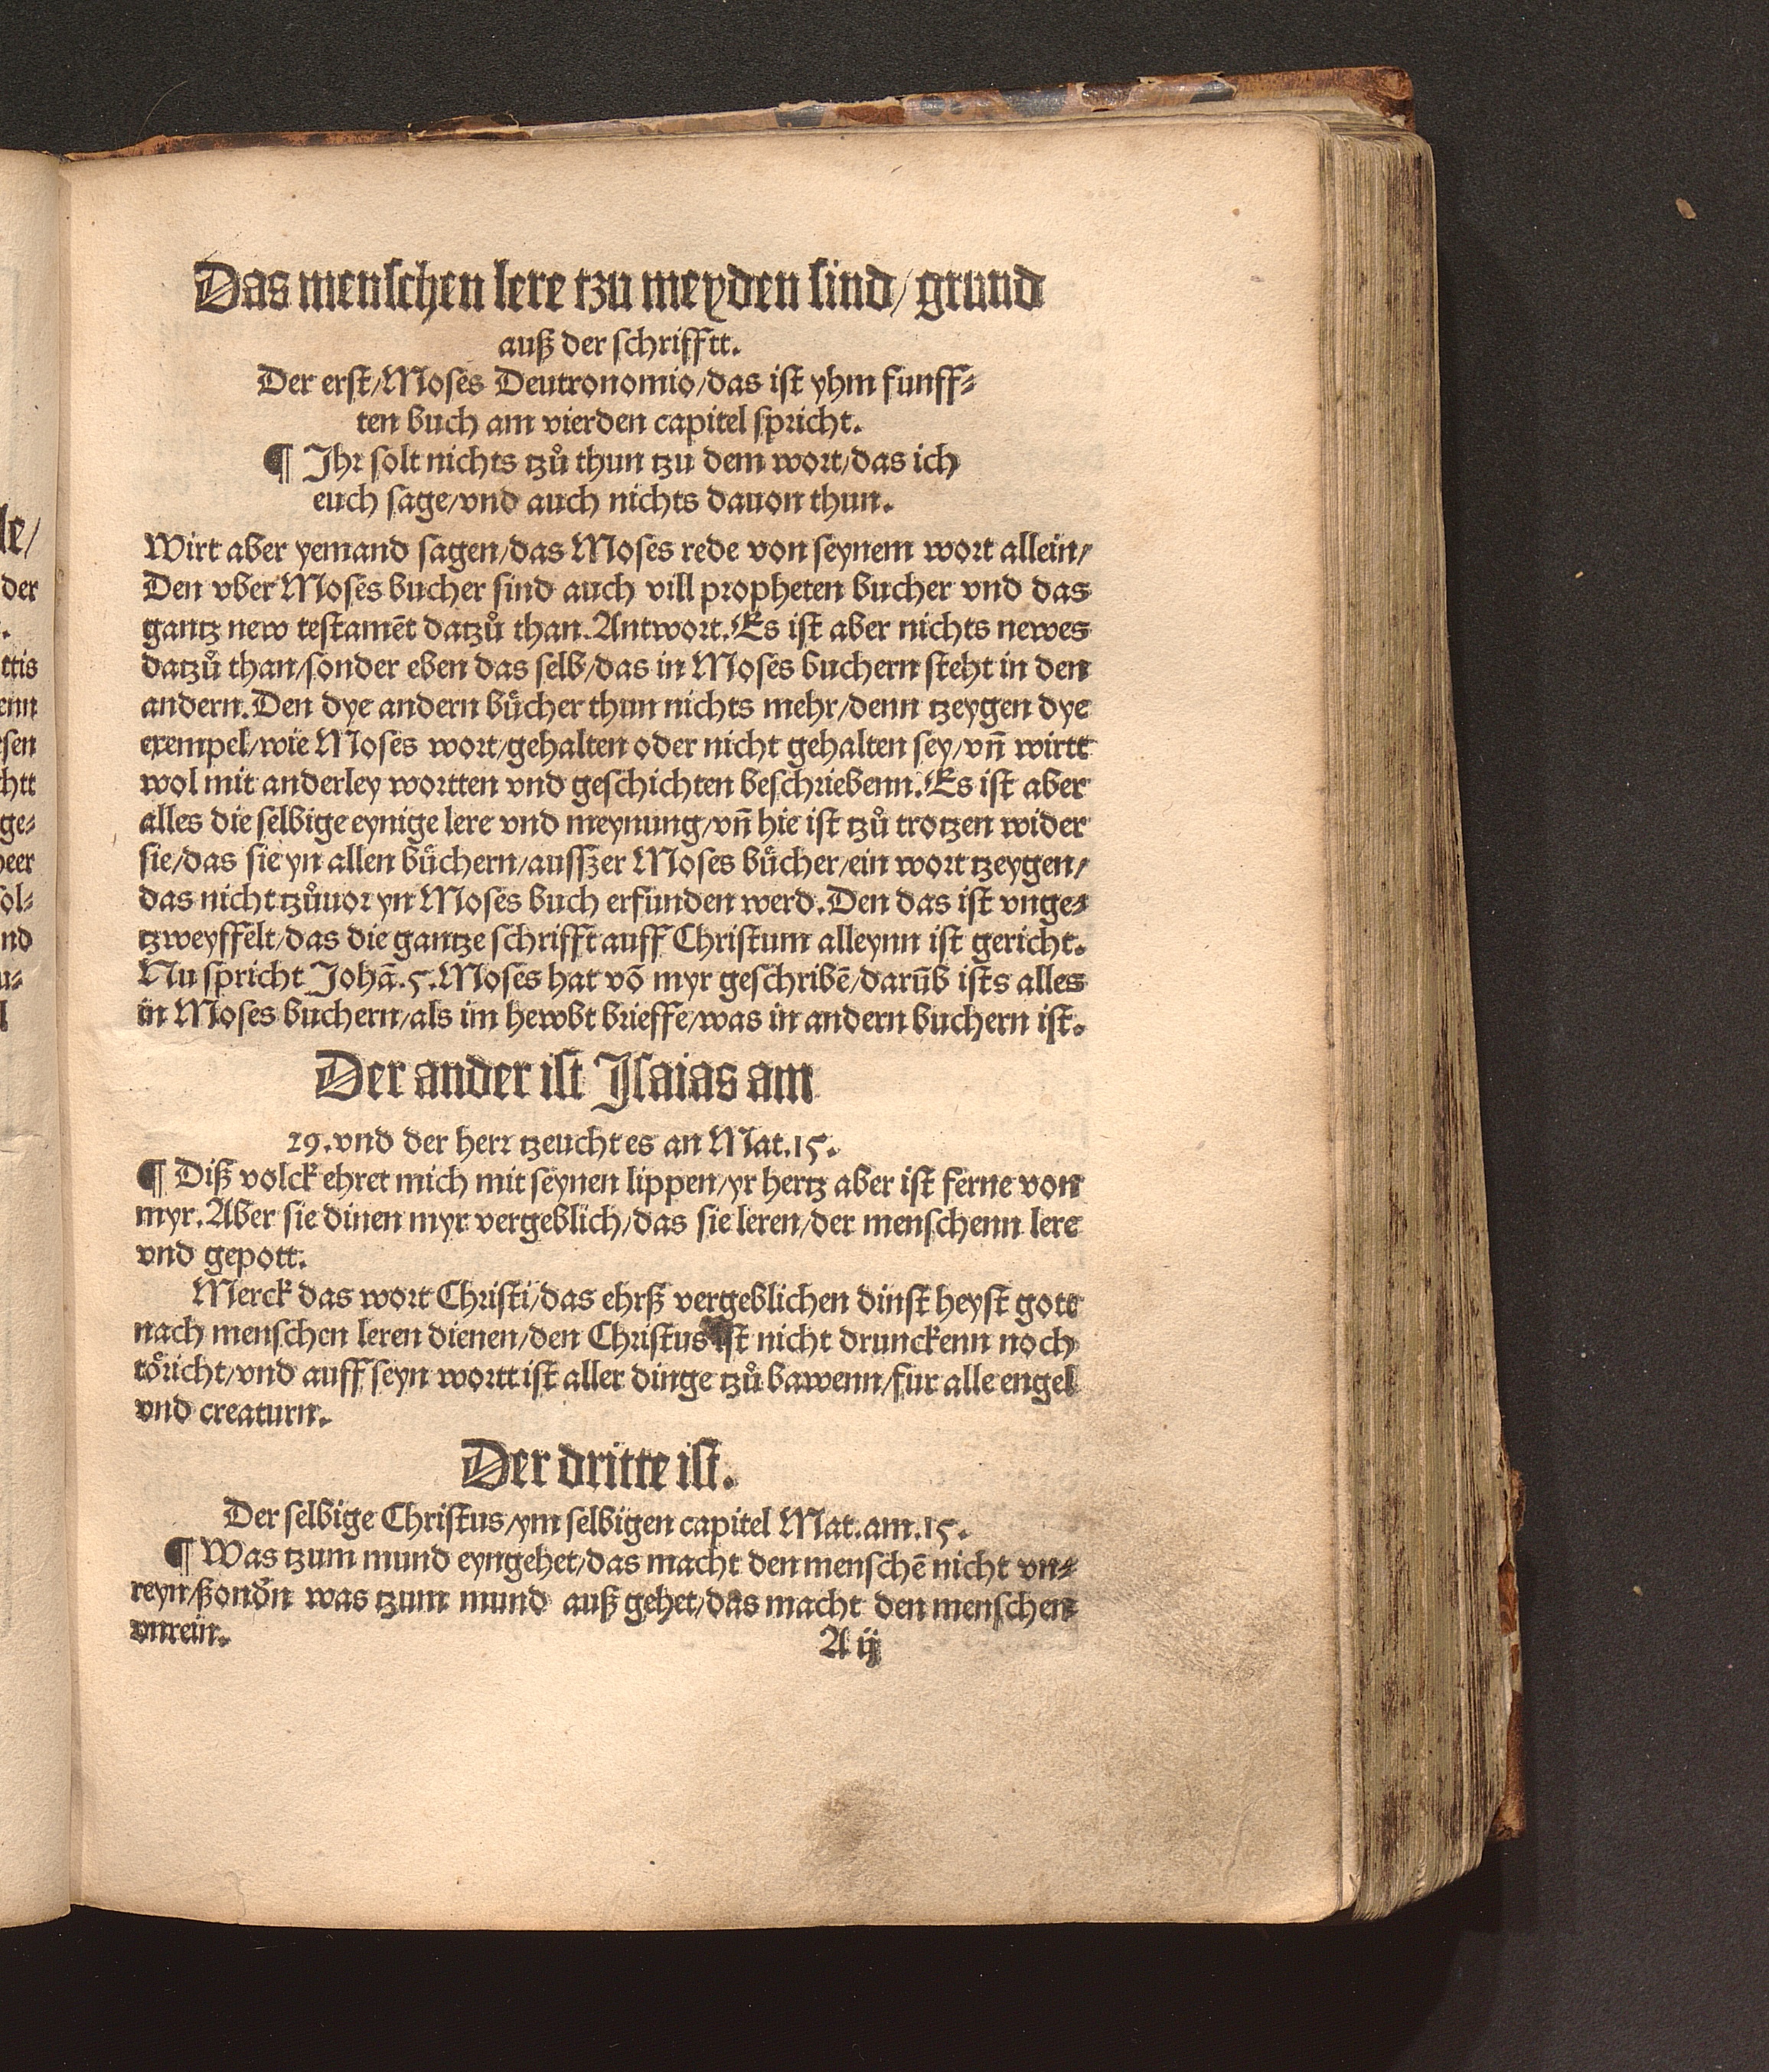 Das menschen lere tzu meyden sind/ grund
auß der schrifftt.
Der erst/Moses Deutronomio/das ist yhm funff⸗
ten buch am vierden capitel spricht.
¶ Ihr solt nichts tzů thun tzu dem wort/das ich
euch sage/vnd auch nichts dauon thun.
Wirt aber yemand sagen/das Moses rede von seynem wort allein/
Den vber Moses bucher sind auch vill propheten bucher vnd das
gantz new testamēt datzů than. Antwort. Es ist aber nichts newes
datzů than/sonder eben das selb/das in Moses buchern steht in den
andern. Den dye andern bůcher thun nichts mehr/denn tzeygen dye
exempel/wie Moses wort/gehalten oder nicht gehalten sey/vñ wirtt
wol mit anderley wortten vnd geschichten beschriebenn. Es ist aber
alles die selbige eynige lere vnd meynung/vñ hie ist tzů trotzen wider
sie/das sie yn allen bůchern/ausszer Moses bůcher/ein wort tzeygen/
das nicht tzůuor yn Moses buch erfunden werd. Den das ist vnge⸗
tzweyffelt/das die gantze schrifft auff Christum alleynn ist gericht.
Nu spricht Johā.5. Moses hat vō myr geschribē/darūb ists alles
in Moses buchern/als im hewbt brieffe/was in andern buchern ist.
Der ander ist Isaias am
29. vnd der herr tzeucht es an Mat.15.
¶ Diß volck ehret mich mit seynen lippen/yr hertz aber ist ferne von
myr. Aber sie dinen myr vergeblich/das sie leren/der menschenn lere
vnd gepott.
Merck das wort Christi/das ehrß vergeblichen dinst heyst gott
nach menschen leren dienen/den Christus ist nicht drunckenn noch
tőricht/vnd auff seyn wortt ist aller dinge tzů bawenn/fur alle engel
vnd creaturn.
Der dritte ist.
Der selbige Christus/ym selbigen capitel Mat.am.15.
¶ Was tzum mund eyngehet/das macht den menschē nicht vn⸗
reyn/ßonďn was tzum mund auß gehet/das macht den menschen
vnrein.
A ij
le/
der
.
ttis
enn
esen
chtt
ge⸗
heer
sol⸗
nd
u⸗
l